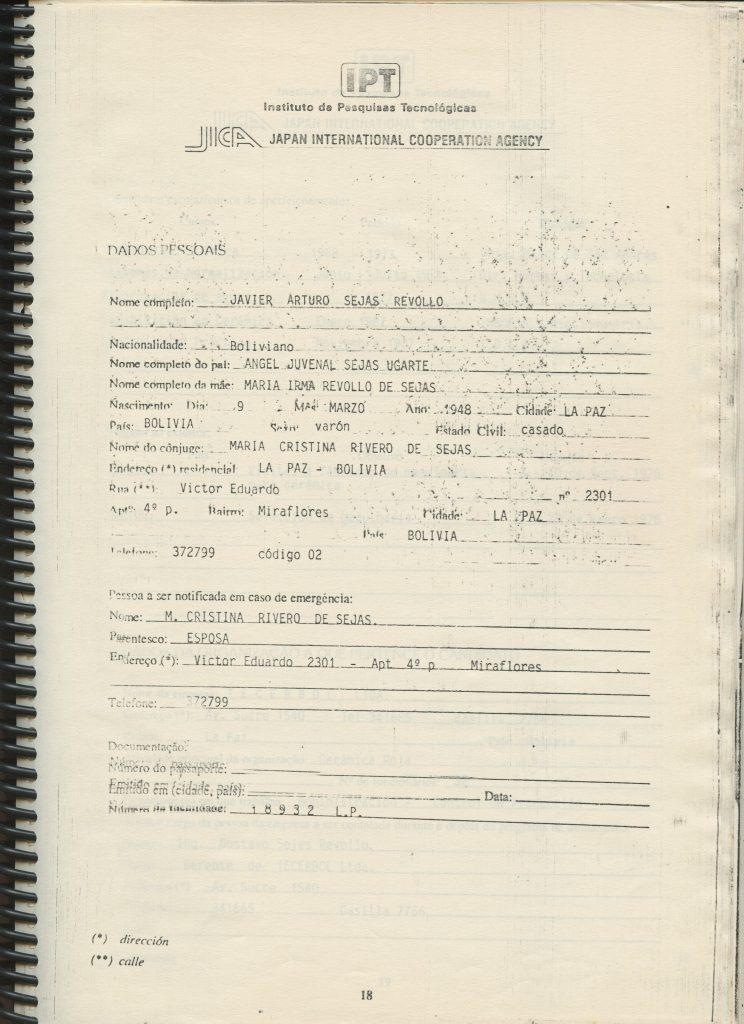 IPT
Instituto de Pesquisas Tecnológicas
JICA JAPAN INTERNATIONAL COOPERATION AGENCY
DADOS PESSOAIS
Nome completo: JAVIER ARTURO SEJAS REVOLLO
Nacionalidade: Boliviano
Nome completo do pai: ANGEL JUVENAL SEJAS UGARTE
Nome completo da mãe: MARIA IRMA REVOLLO DE SEJAS
Nascimento: Dia: 9 Mês MARZO Ano: 1948 Cidade: LA PAZ
País: BOLIVIA Sexo: varón Estado Civil: casado
Nome do cônjuge: MARIA CRISTINA RIVERO DE SEJAS
Endereço (*) residencial: LA PAZ - BOLIVIA
Rua (**): Victor Eduardo nº 2301
Aptº: 4º p. Bairro: Miraflores Cidade: LA PAZ
País: BOLIVIA
Telefone: 372799 código 02
Pessoa a ser notificada em caso de emergência:
Nome: M. CRISTINA RIVERO DE SEJAS.
Parentesco: ESPOSA
Endereço (*): Victor Eduardo 2301 - Apt 4º p Miraflores
Telefone: 372799
Documentação:
Número do passaporte:
Emitido em (cidade, país): Data:
Número da identidade: 18932 L.P.
(*) dirección
(**) calle
18